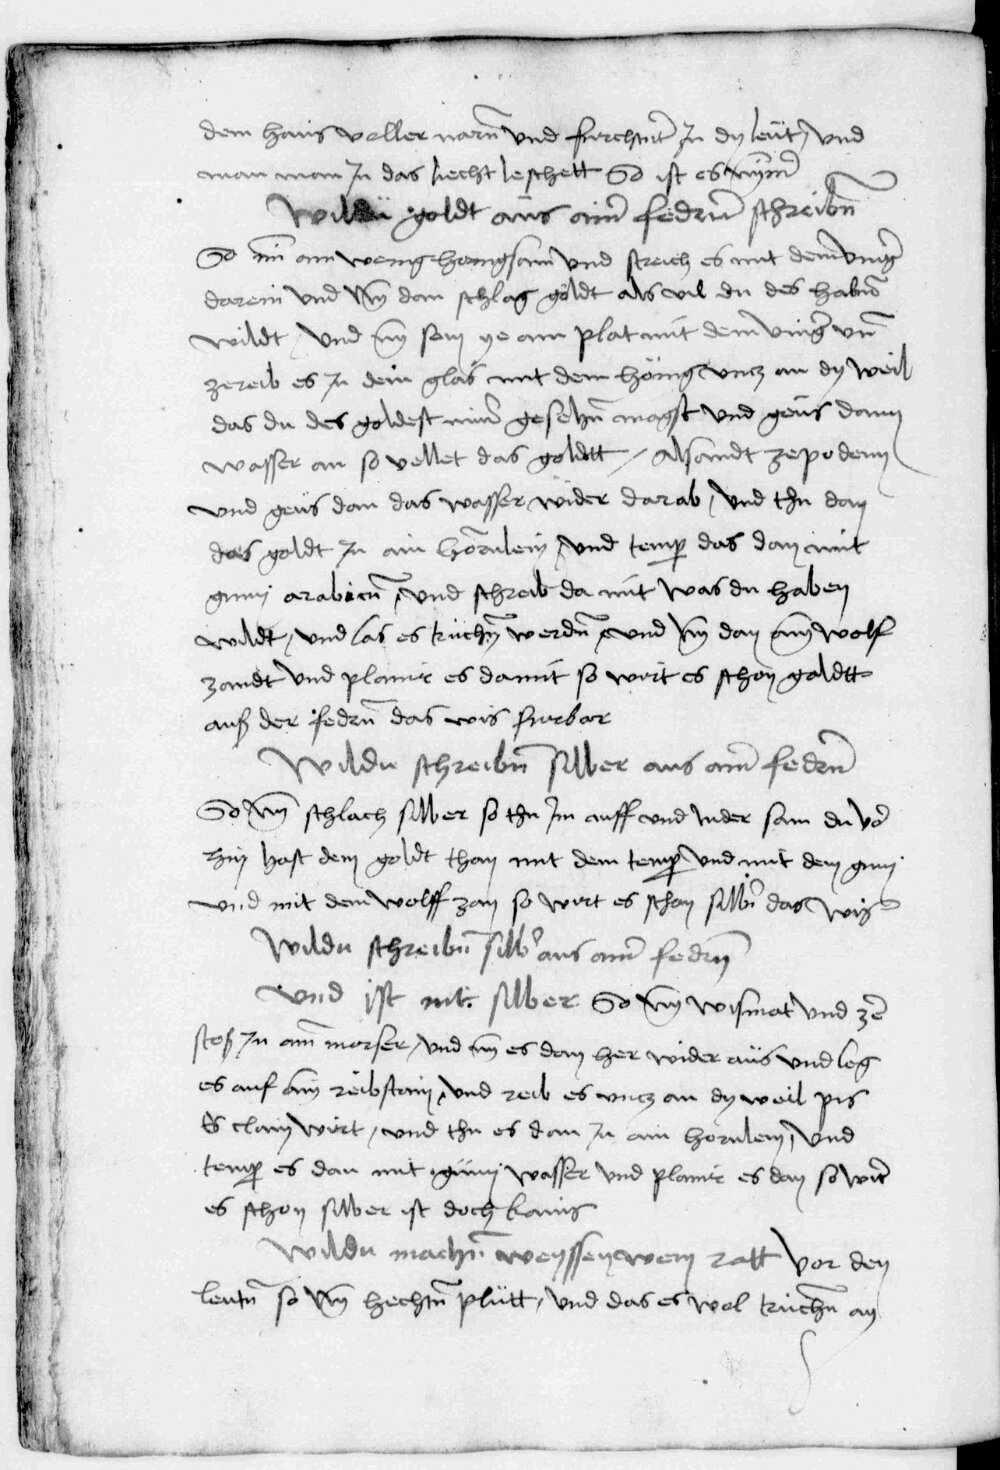 dem haus voller narrñ vnd furchtñt Jn dy leüt / vnd
wan man Jn das liecht leschett So ist es nÿm̃
Wildu goldt aus aim̃ fedrñ schreibñ
So nim̃ ain wenig hönigsaim vnd streich es mit dem vingr̃
darein vnd nÿm dan schlag goldt als vil du des habñ
wildt / vnd nÿm sein ye ain plat mit dem vingr̃ vñ
zereib es Jn dein glas mit dem hönig vncz an dÿ weil
das du des goldest nim̃ gesehñ magst vnd geüs dann
wasser an so vellet das goldtt / alsandt ze podenn
vnd geüs dan das wasser wider darab / vnd thu dan
das goldt Jn ain hörnlein / vnd temper das dan mit
gumi arabicũ / vnd schreib da mit was du haben
wildt / vnd las es trückhñ werdñ / vnd nÿm dan ain wolf
zandt vnd planir es damit so wirt es schon goldtt
auß der fedrñ das wis furbar
Wildu schreibñ silber aus aim̃ fedrñ
So nÿm schlach silber so thu jm auff vnd nider sam du vor̃
hin hast dem goldt than mit dem temper vnd mit dem gumi
vnd mit dem wolff zan so wirt es schon silbr̃ das wis
Wildu schreibñ silbr̃ aus aim̃ fedrñ
vnd ist nit silber So nÿm wismat vnd ze
stoß Jn aim̃ morser / vnd nÿm es dan her wider aüs vnd leg
es auf ain reibstain / vnd reib es vncz an dy weil pis
es clain wirt / vnd thu es dan Jn ain hörnlein / vnd
temper es dan mit gümi wasser vnd planir es dan so wirt
es schon silber ist doch kains
Wildu machñ weyssen wein rott vor den
leutñ so nÿm hechtñ plütt / vnd das es wol trückhñ an